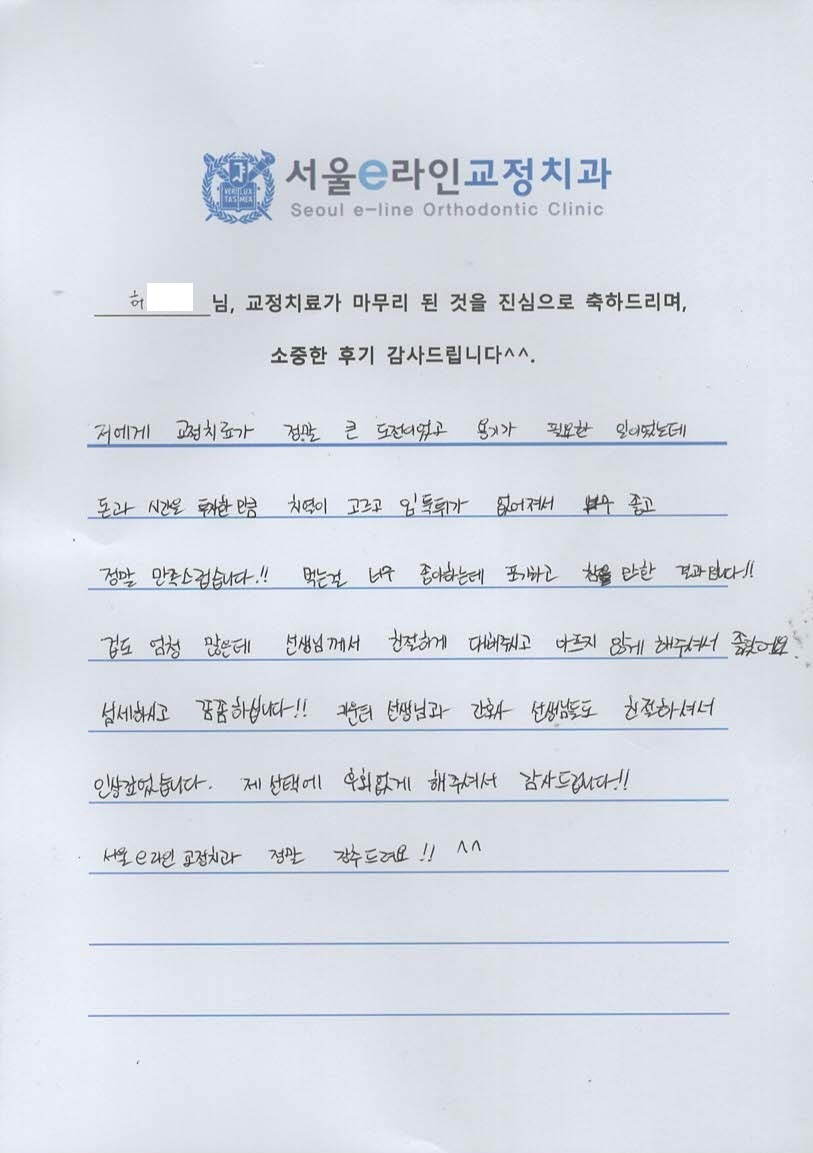 서울e라인교정치과
Seoul e-line Orthodontic Clinic
VERI LUX
TAS MEA
허 님, 교정치료가 마무리 된 것을 진심으로 축하드리며,
소중한 후기 감사드립니다^^.
저에게 교정치료가 정말 큰 도전이었고 용기가 필요한 일이었는데
돈과 시간을 투자한 만큼 치열이 고르고 입툭튀가 없어져서 너무 좋고
정말 만족스럽습니다.!! 먹는걸 너무 좋아하는데 포기하고 참을 만한 결과입니다!!
겁도 엄청 많은데 선생님께서 친절하게 대해주시고 아프지 않게 해주셔서 좋았어요.
섬세하시고 꼼꼼하십니다!! 카운터 선생님과 간호사 선생님들도 친절하셔서
인상깊었습니다. 제 선택에 후회없게 해주셔서 감사드립니다!!
서울e라인 교정치과 정말 강추드려요!! ^^